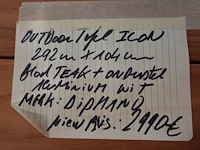 OUTDOOR Tafel ICON
292cm + 104cm
Blad TEAK + onderstel
Aluminium wit
MERK: DiPHANO
Nieuw prijs: 2990€